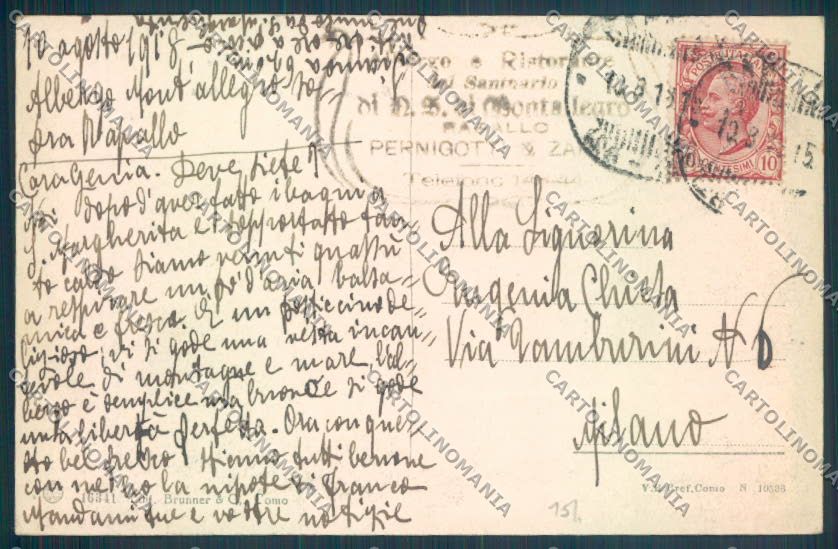 10 agosto 1918
Albergo Mont'allegro
Rapallo
Cara Genia. Dove siete?
Noi dopo d'aver fatto i bagni a
S. Margherita e sopportato tan
to caldo siamo venuti quassù
a respirare un po' d'aria balsa
mica e fresca di un posticino de
lizioso; vi si gode una vista incan
tevole di montagne e mare. L'al
bergo è semplice ma buono e si gode
una libertà perfetta. Ora con que
sto bel fresco stiamo tutti benone
con me ho la nipote di Franco
Mandami tue e vostre notizie
16341 Edit. Brunner & C., Como
Albergo e Ristorante
del Santuario
di N. S. di Montallegro
RAPALLO
PERNIGOTTI &
Telefono
POSTE ITALIANE
CENTESIMI 10
Alla Signorina
Eugenia Chiesa
Via Tamburini N 6
Milano
V. R. Pref. Como N 10536
15/
CARTOLINOMANIA